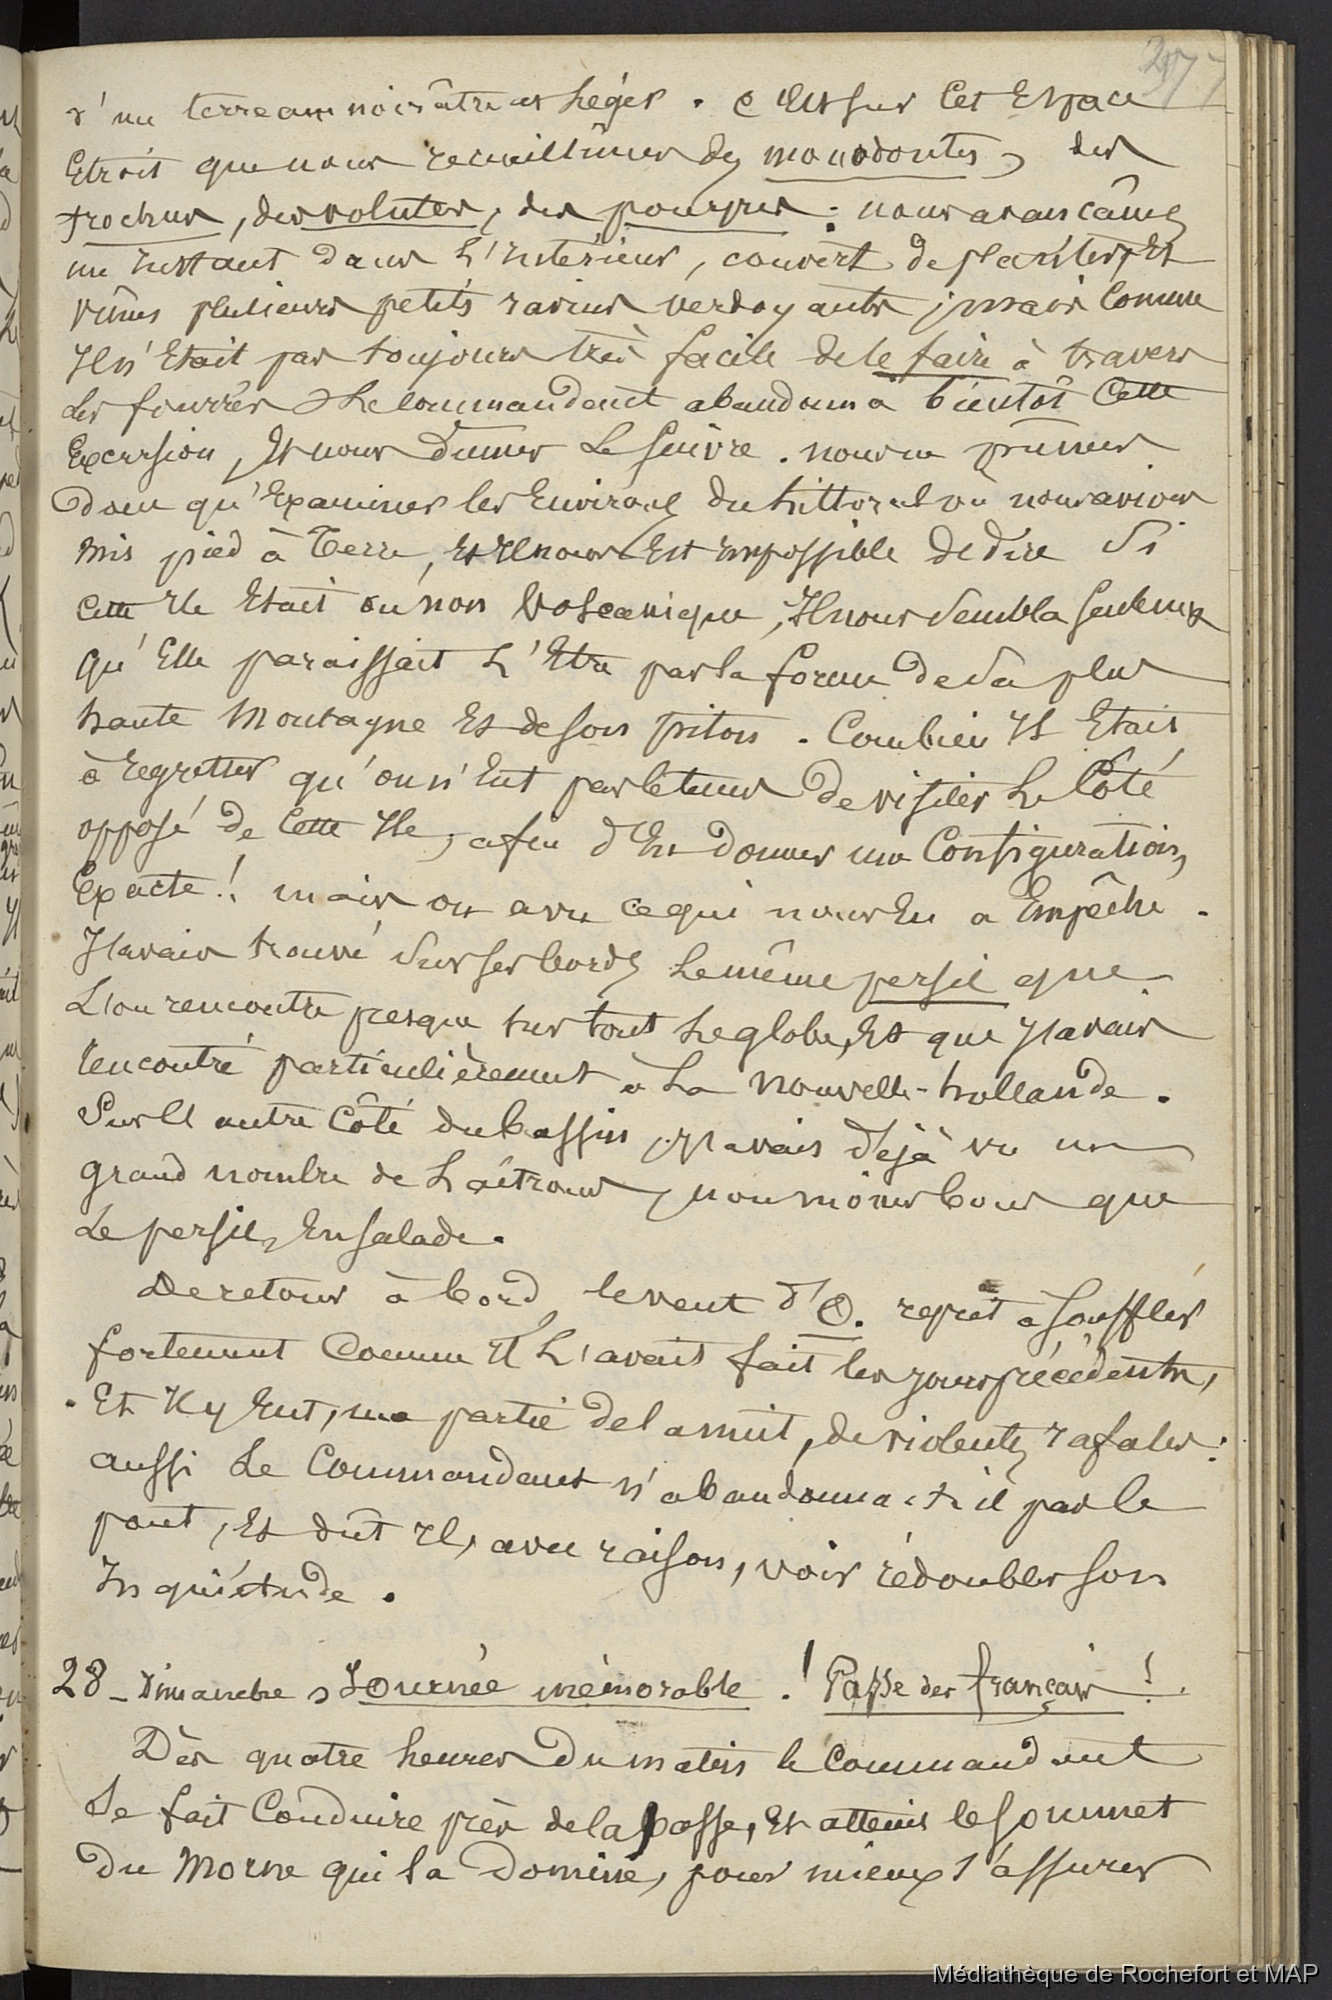 377
d'un terreau noirâtre et léger. C'est sur cet espace
étroit que nous recueillîmes des monodontes, des
trochus, des volutes, des pourpres : nous avançâmes
un instant dans l'intérieur, couvert de plantes, et
vîmes plusieurs petits ravins verdoyants ; mais comme
il n'était pas toujours très facile de le faire à travers
les fourrés, le commandant abandonna bientôt cette
excursion, et nous dûmes le suivre. nous ne pûmes
donc qu'examiner les environs du littoral où nous avions
mis pied à terre, et il nous est impossible de dire si
cette île était ou non volcanique, il nous sembla seulement
qu'elle paraissait l'être par la forme de sa plus
haute montagne et de son piton. Combien il était
à regretter qu'on n'eut pas le tems de visiter le côté
opposé de cette île, afin d'en donner une configuration
exacte ! mais on a vu ce qui nous en a empêché.
J'avais trouvé sur ses bords le même persil que
l'on rencontre presque sur tout le globe, et que j'avais
rencontré particulièrement à la nouvelle-hollande.
Sur l'autre côté du bassin, j'avais déjà vu un
grand nombre de laîtrons, non moins bons que
le persil, en salade.
De retour à bord, le vent d'O. reprit à souffler
fortement comme il l'avait fait les jours précédents,
et il y eut, une partie de la nuit, de violentes rafales :
aussi le commandant n'abandonna-t-il pas le
pont, et dût il, avec raison, voir rédoubler son
inquiétude.
28 - Dimanche, Journée mémorable. ! Passe des français !
Dès quatre heures du matin le commandant
se fait conduire près de la passe, et atteint le sommet
du morne qui la domine, pour mieux s'assurer
Médiathèque de Rochefort et MAP